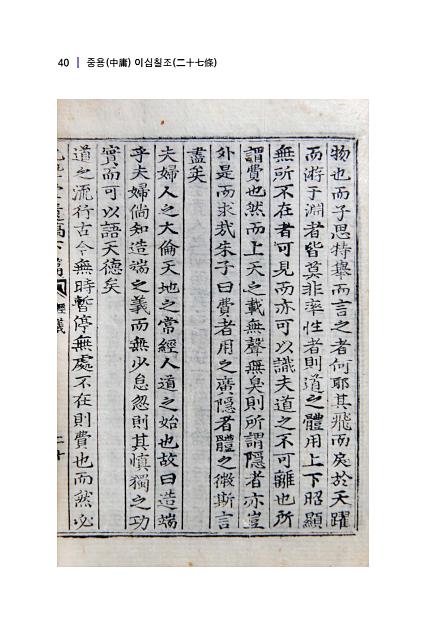 40 | 중용(中庸) 이십칠조(二十七條)
物也而子思特擧而言之者何耶其飛而戾於天躍
而游于淵者皆莫非率性者則道之體用上下昭顯
無所不在者可見而亦可以識夫道之不可離也所
謂費也然而上天之載無聲無臭則所謂隱者亦豈
外是而求哉朱子曰費者用之廣隱者體之微斯言
盡矣
夫婦人之大倫天地之常經人道之始也故曰造端
乎夫婦倘知造端之義而無少怠忽則其愼獨之功
實而可以語天德矣
道之流行古今無時暫停無處不在則費也而然必
遺稿下篇
經義
二十